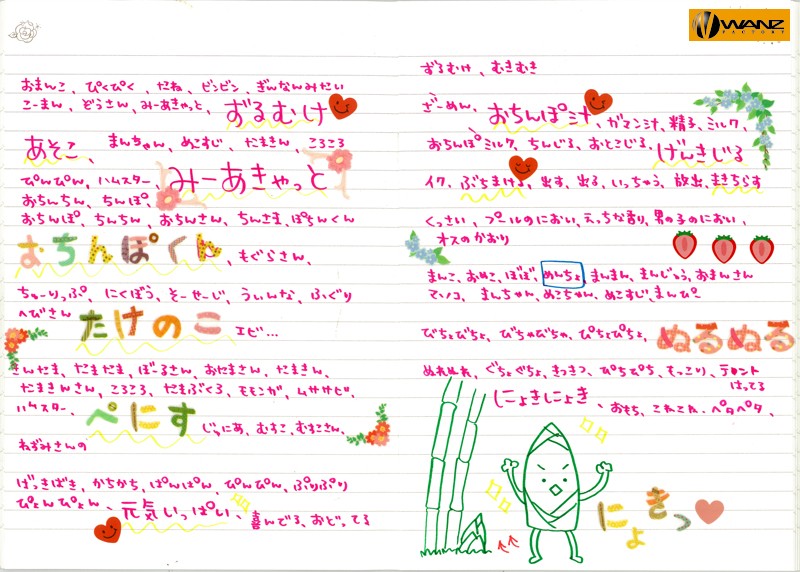 おまんこ、ぴくぴく、だね、ビンビン、ぎんなんみたい
こーまん、どうさん、みーあきゃっと、ずるむけ
あそこ、まんちゃん、めこすじ、だまきん、ころころ
ぴんぴん、ハムスター、みーあきゃっと
おちんちん、ちんぽ、
おちんぽ、ちんちん、おちんさん、ちんさま、ぽちんくん
むちんぽくん、もぐらさん、
ちゅーりっぷ、にくぼう、そーせーじ、ういんな、ふぐり
へびさん たけのこ エビ...
きんだま、だまだま、ぼーるさん、おだまさん、だまきん、
だまきんさん、こころころ、だまぶくろ、モモンガ、ムササビ、
ハムスター、ぺにす じゅにあ、むすこ、むすこさん、
ねずみさんの
げっきばき、かちかち、ぱんぱん、ぴんぴん、ぷりぷり
ぴょんぴょん、元気いっぱい、喜んでる、おどってる
WANZ
FACTORY
ずるむけ、むきむき
ざーめん、おちんぽ汁、ガマン汁、精子、ミルク、
おちんぽミルク、ちんじる、おとこじる、げんきじる
イク、ぶちまける、出す、出る、いっちゃう、放出、まきちらす
くっさい、プールのにおい、えっちな香り、男の子のにおい、
オスのかおり
まんこ、おめこ、ぼぼ、めんちょ、まんまん、まんじゅう、おまんさん
マンノコ、まんちゃん、めこちゃん、めこすじ、まんぴー
びちょびちょ、びちゃびちゃ、ぴちょぴちょ、ぬるぬる
ぬれぬれ、ぐちょぐちょ、きつきつ、ぴちぴち、もっこり、テント
はってる
にょきにょき、おもち、こねこね、ペタペタ、
にょきっ